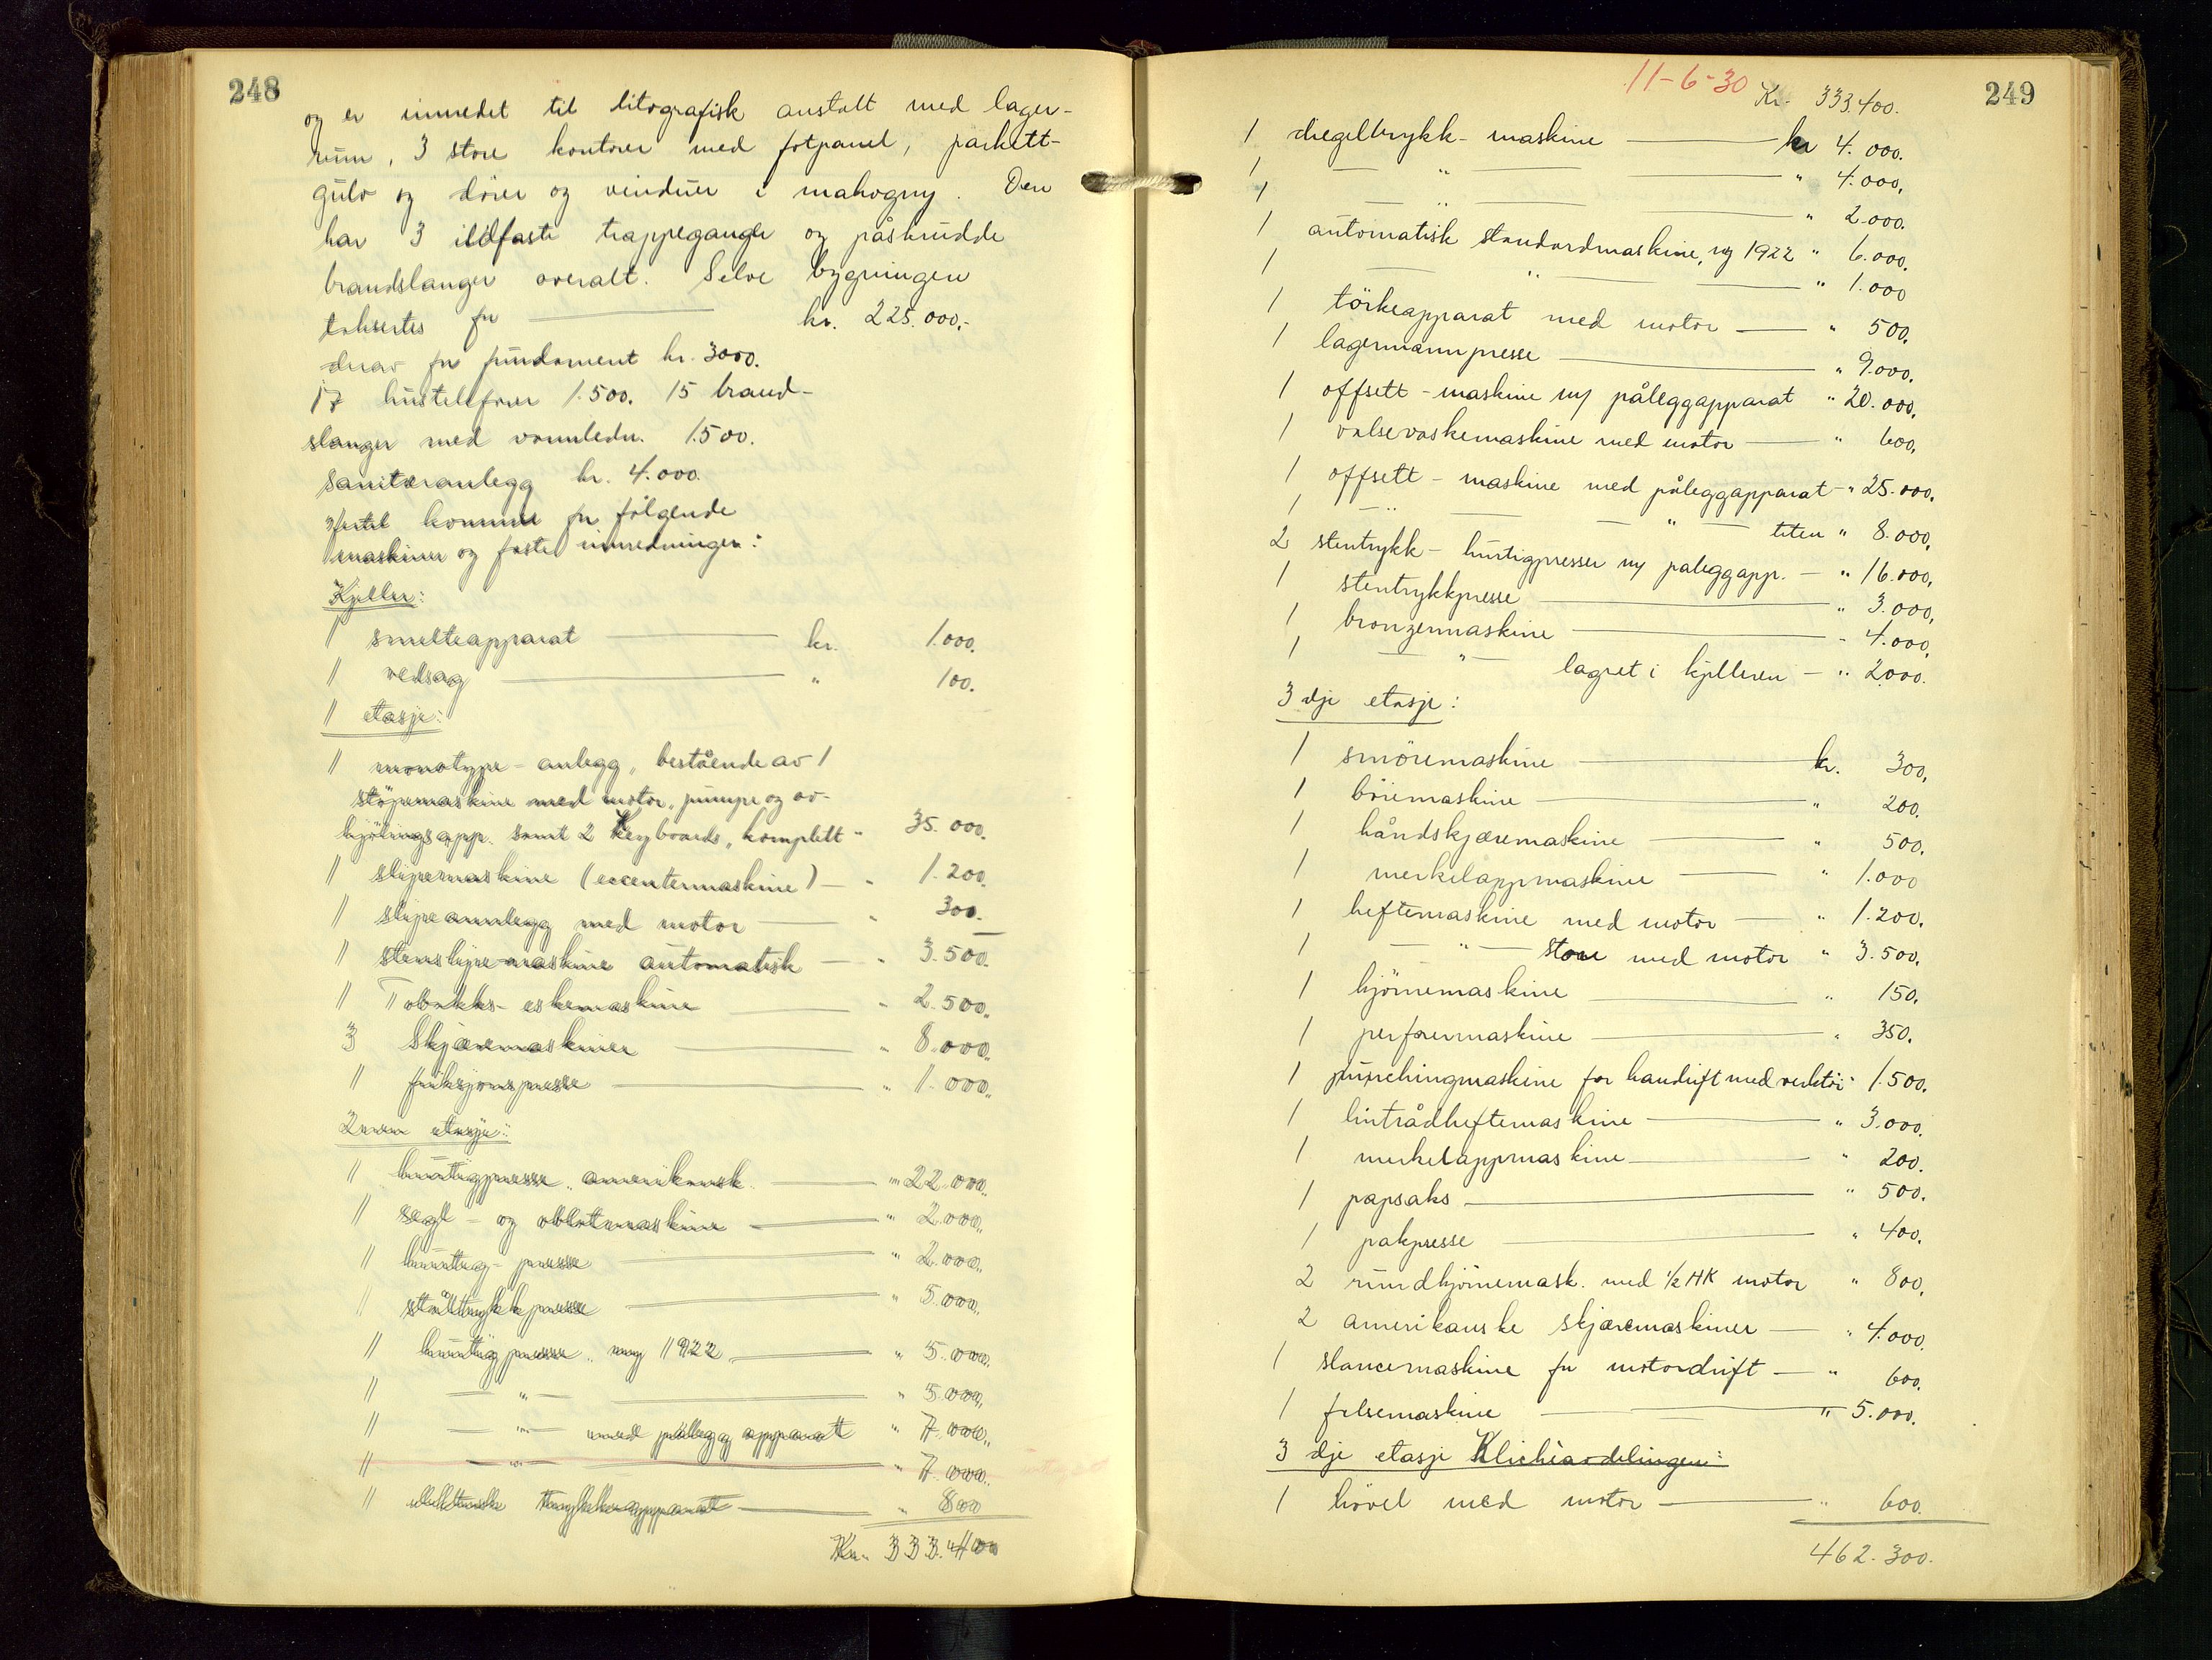 248
og er innredet til litografisk anstalt med lager-
rum, 3 store kontorer med fotpanel, parkett-
gulv og dörer og vinduer i mahogny. Den
har 3 ildfaste trappeganger og påskrudde
brandslanger overalt. Selve bygningen
takseres for — kr. 225.000,-
derav for fundament kr. 3000.
17 hustelefoner 1.500. 15 brand-
slanger med vannledn. 1.500.
Sanitæranlegg kr. 4.000.
hertil kommer for følgende
maskiner og faste innredninger:
Kjeller:
1 smelteapparat — kr. 1.000.
1 vedsag — " 100.
1 etasje:
1 monotype-anlegg, bestående av 1
støpemaskine med motor, pumpe og av-
kjölingsapp. samt 2 Keyboards, komplett " 35.000.
1 slipemaskine (eccentermaskine) — " 1.200.
1 slipeannlegg med motor — " 300.
1 stenslipe-maskine automatisk — " 3.500.
1 Tobakks-eskemaskine — " 2.500.
3 Skjæremaskiner — " 8.000.
1 friksjonspresse — " 1.000.
2nen etasje:
1 hurtigpresse, amerikansk — " 22.000.
1 segl- og oblatmaskine — " 2.000.
1 hurtig-presse — " 2.000.
1 ståltrykkpresse — " 5.000.
1 hurtigpresse, ny 1922 — " 5.000.
1 — " — " 5.000.
1 — " — med pålegg apparat " 7.000.
1 — " — " 7.000.
1 elektriske trykkerapparat — " 800
Kr. 333.400
11-6-30
249
Kr. 333.400.
1 diegeltrykk-maskine — kr 4.000.
1 — " — " 4.000.
1 — " — " 2.000.
1 automatisk standardmaskine, ny 1922 " 6.000.
1 — " — " 1.000
1 törkeapparat med motor — " 500.
1 lagermannpresse — " 9.000.
1 offsett-maskine m/ påleggapparat " 20.000.
1 valsevaskemaskine med motor — " 600.
1 offsett-maskine med påleggapparat " 25.000.
1 — " — " — liten " 8.000.
2 stentrykk-hurtigpresser m/ påleggapp. — " 16.000.
1 stentrykkpresse — " 3.000.
1 bronzermaskine — " 4.000.
1 — " — lagret i kjelleren — " 2.000.
3dje etasje:
1 smöremaskine — kr. 300.
1 böiemaskine — " 200.
1 håndskjæremaskine — " 500.
1 merkelappmaskine — " 1.000
1 heftemaskine med motor — " 1.200.
1 — " — store med motor " 3.500.
1 hjörnemaskine — " 150.
1 perforermaskine — " 350.
1 punchingmaskine for handrift med verktöi " 1.500.
1 lintrådheftemaskine — " 3.000.
1 merkelappmaskine — " 200.
1 papsaks — " 500.
1 pakpresse — " 400.
2 rundhjörnemask. med 1/2 HK motor " 800.
2 amerikanske skjæremaskiner — " 4.000.
1 stancemaskine for motordrift — " 600.
1 falsemaskine — " 5.000.
3dje etasje Klichéavdelingen:
1 hövel med motor — " 600.
462.300.